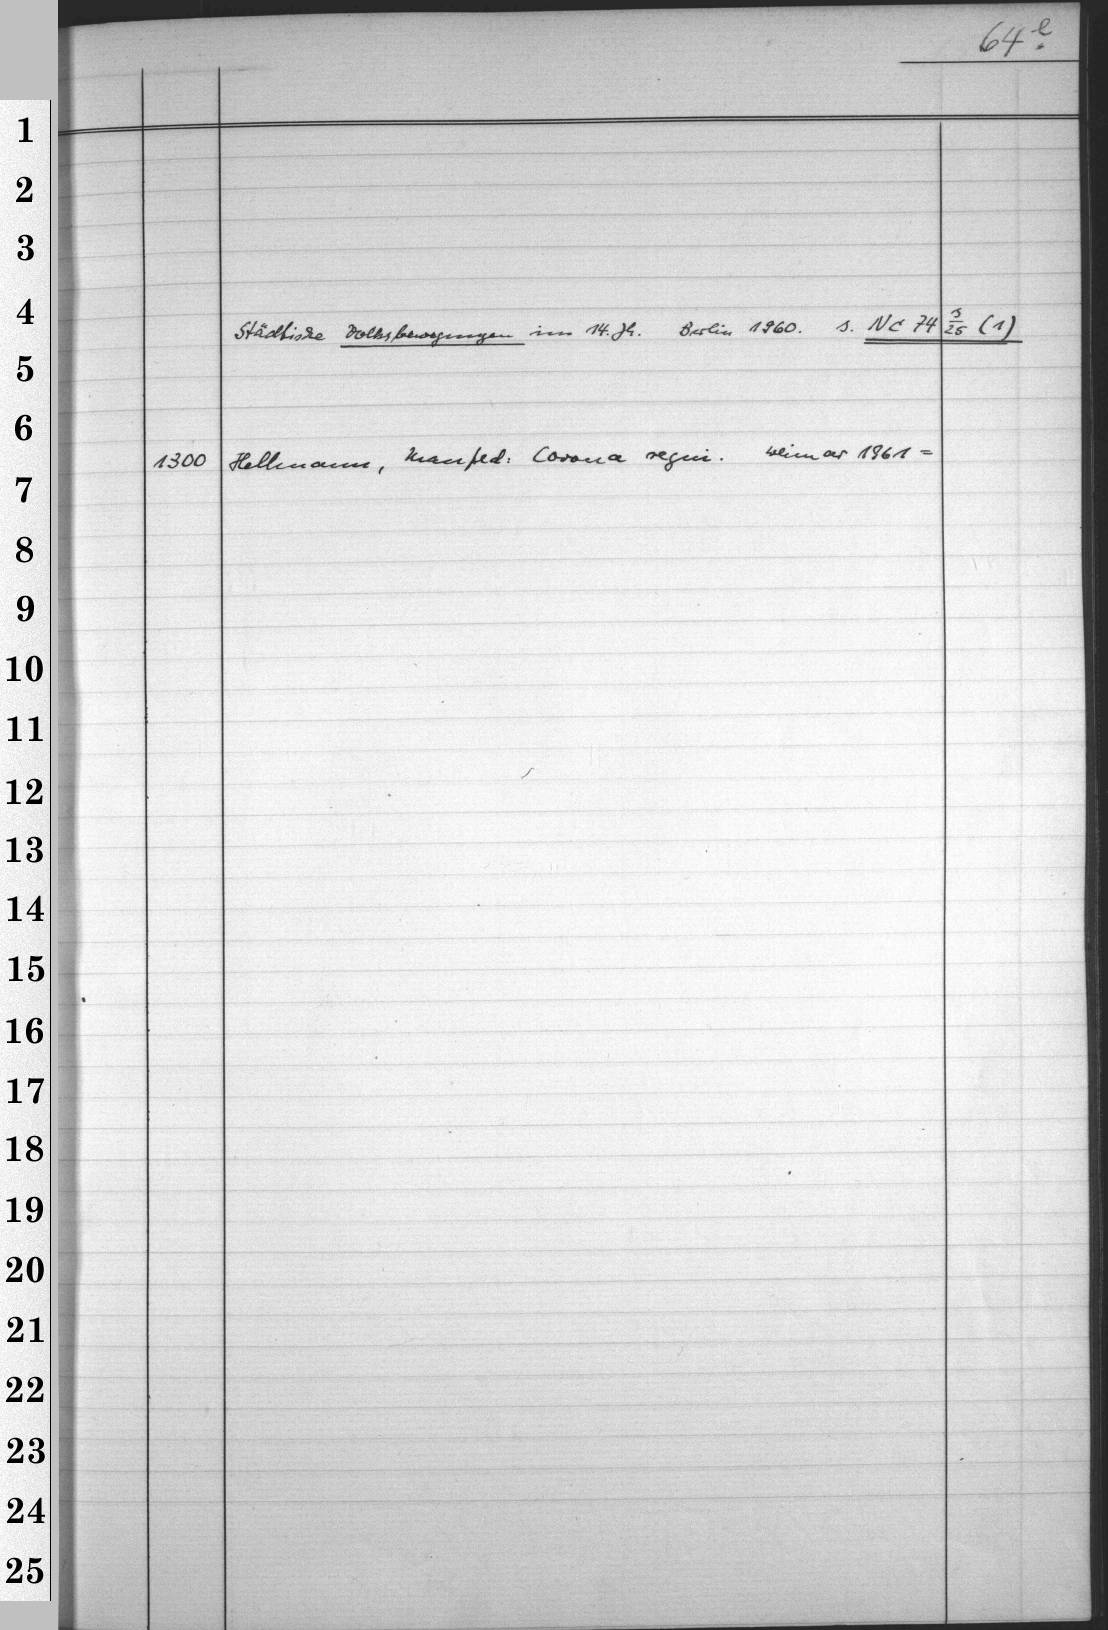 64 e.
1
2
3
4
Städtische Volksbewegungen im 14. Jh. Berlin 1960. s. NC 74 5/25 (1)
5
6
1300 Hellmann, Manfred: Corona regni. Weimar 1961 =
7
8
9
10
11
12
13
14
15
16
17
18
19
20
21
22
23
24
25